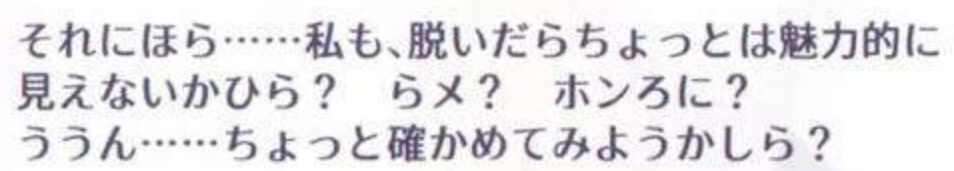 それにほら……私も、脱いだらちょっとは魅力的に
見えないかひら？　らメ？　ホンろに？
ううん……ちょっと確かめてみようかしら？